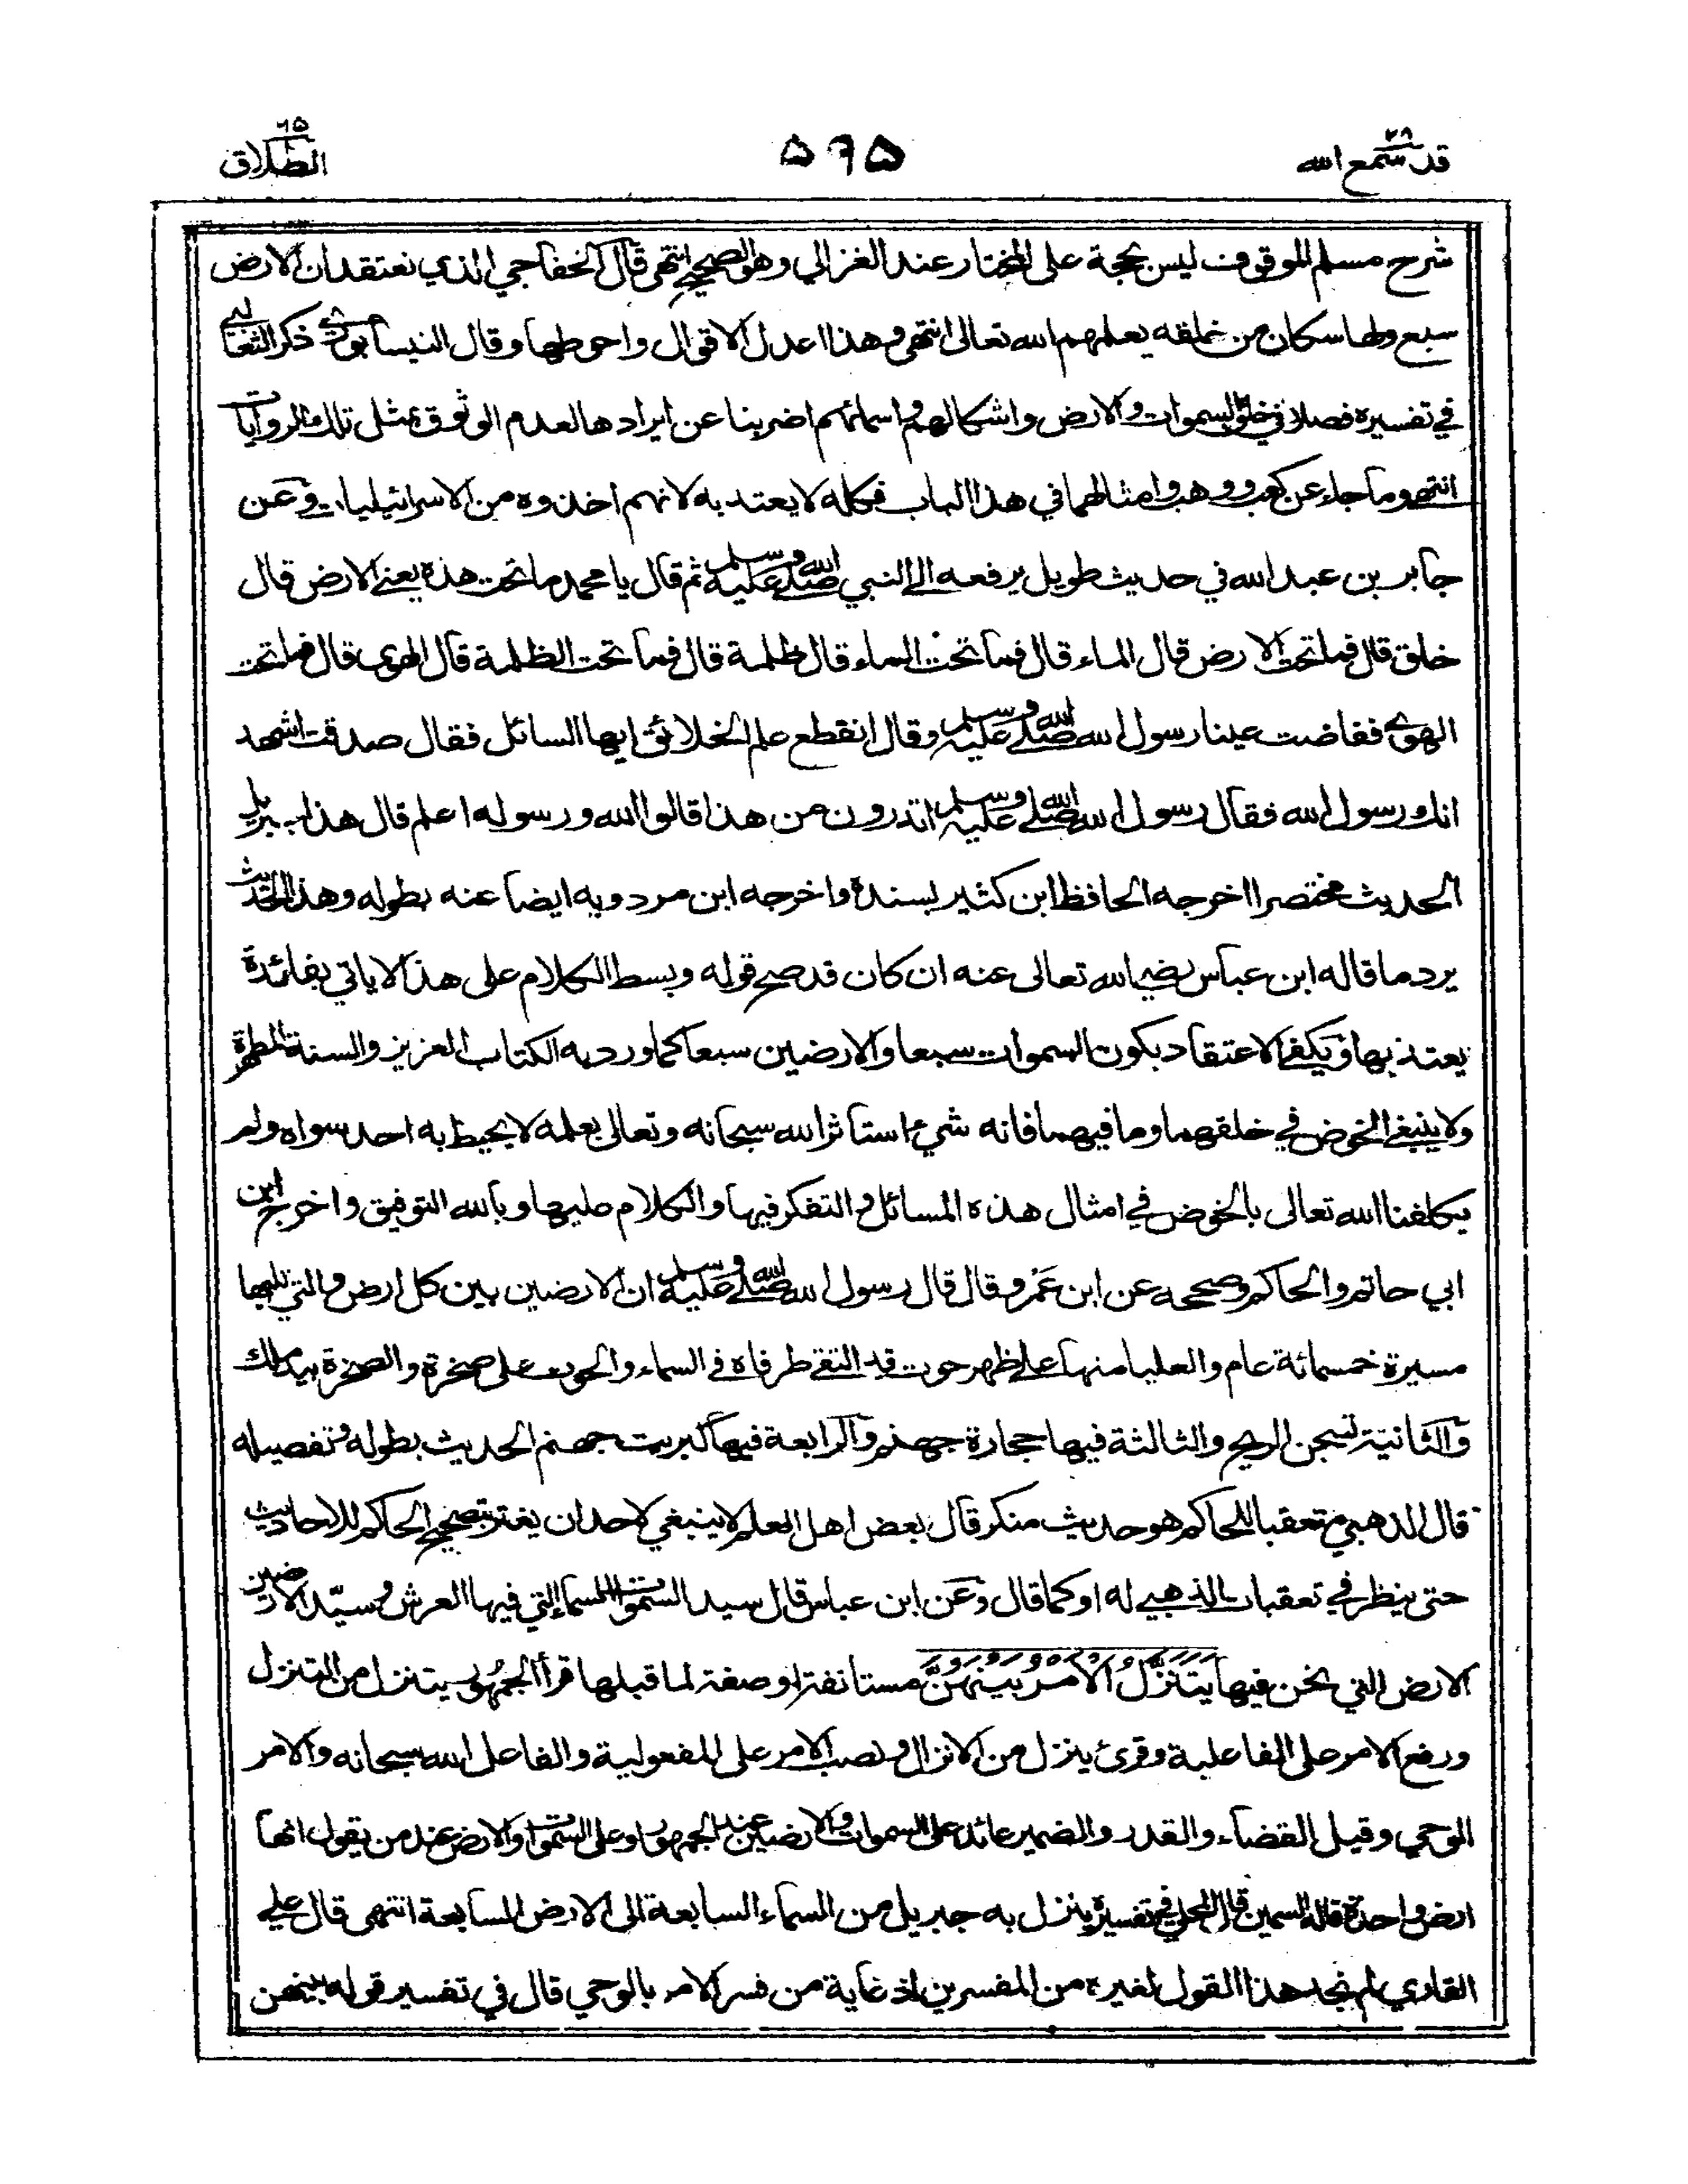 قد سمع الله ٢٨
٥٩٥
الطلاق ٦٥
شرح مسلم الموقوف ليس بحجة على المختار عند الغزالي وهو الصحيح انتهى قال الخفاجي الذي نعتقد ان الارض
سبع ولها سكان من خلقه يعلمهم الله تعالى انتهى وهذا اعدل الاقوال واحوطها وقال النيسابوري ذكر الثعالبي
في تفسيره فصلا في خلق السموات والارض واشكالهم واسمائهم اضربنا عن ايرادها لعدم الوثوق بمثل تلك الروايات
انتهى وما جاء عن كعب ووهب وامثالهما في هذا الباب فكله لا يعتد به لانهم اخذوه من الاسرائيليات وعن
جابر بن عبد الله في حديث طويل يرفعه الى النبي صلى الله عليه وسلم ثم قال يا محمد ما تحت هذه يعني الارض قال
خلق قال فما تحت الارض قال الماء قال فما تحت الماء قال ظلمة قال فما تحت الظلمة قال الهوى قال فما تحت
الهوى ففاضت عينا رسول الله صلى الله عليه وسلم وقال انقطع علم الخلائق ايها السائل فقال صدقت اشهد
انك رسول الله فقال رسول الله صلى الله عليه وسلم اتدرون من هذا قالوا الله ورسوله اعلم قال هذا جبريل
الحديث مختصرا اخرجه الحافظ ابن كثير بسنده واخرجه ابن مردويه ايضا عنه بطوله وهذا الحديث
يرد ما قاله ابن عباس رضي الله تعالى عنه ان كان قد صح قوله وبسط الكلام على هذا لا ياتي بفائدة
يعتد بها ويكفي الاعتقاد بكون السموات سبعا والارضين سبعا كما ورد به الكتاب العزيز والسنة المطهرة
ولا ينبغي الخوض في خلقهما وما فيهما فانه شيء استاثر الله سبحانه وتعالى بعلمه لا يحيط به احد سواه ولم
يكلفنا الله تعالى بالخوض في امثال هذه المسائل والتفكر فيها والكلام عليها وبالله التوفيق واخرج ابن
ابي حاتم والحاكم وصححه عن ابن عَمْرو قال قال رسول الله صلى الله عليه وسلم ان الارضين بين كل ارض والتي تليها
مسيرة خمسمائة عام والعليا منها على ظهر حوت قد التقى طرفاه في السماء والحوت على صخرة والصخرة بيد ملك
والثانية تسجن الريح والثالثة فيها حجارة جهنم والرابعة فيها كبريت جهنم الحديث بطوله وتفصيله
قال الذهبي متعقبا للحاكم هو حديث منكر قال بعض اهل العلم لا ينبغي لاحد ان يغتر بتصحيح الحاكم للاحاديث
حتى ينظر في تعقبات الذهبي له او كما قال وعن ابن عباس قال سيد السموات السماء التي فيها العرش وسيّد الارضين
الارض التي نحن فيها يَتَنَزَّلُ الْاَمْرُ بَيْنَهُنَّ مستانفة او صفة لما قبلها قرأ الجمهور يتنزل من التنزل
ورفع الامر على الفاعلية وقرئ ينزل من الانزال ونصب الامر على المفعولية والفاعل الله سبحانه والامر
الوحي وقيل القضاء والقدر والضمير عائد على السموات والارضين عند الجمهور او على السموات والارض عند من يقول انها
ارض واحدة قاله السمين قال المحلي في تفسيره ينزل به جبريل من السماء السابعة الى الارض السابعة انتهى قال علي
القاري لم نجد هذا القول لغيره من المفسرين اذ غاية من فسر الامر بالوحي قال في تفسير قوله بينهن